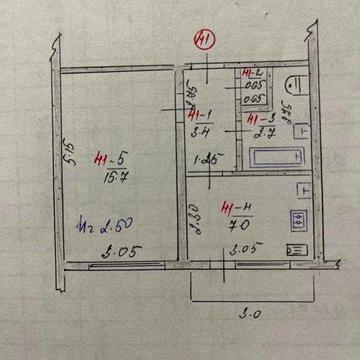 41
41-2
0.65
0.65
2.75
41-1
3.4
41-3
2.7
2.75
1.25
5.15
41-5
15.7
41-4
7.0
2.30
H=2.50
3.05
3.05
3.0